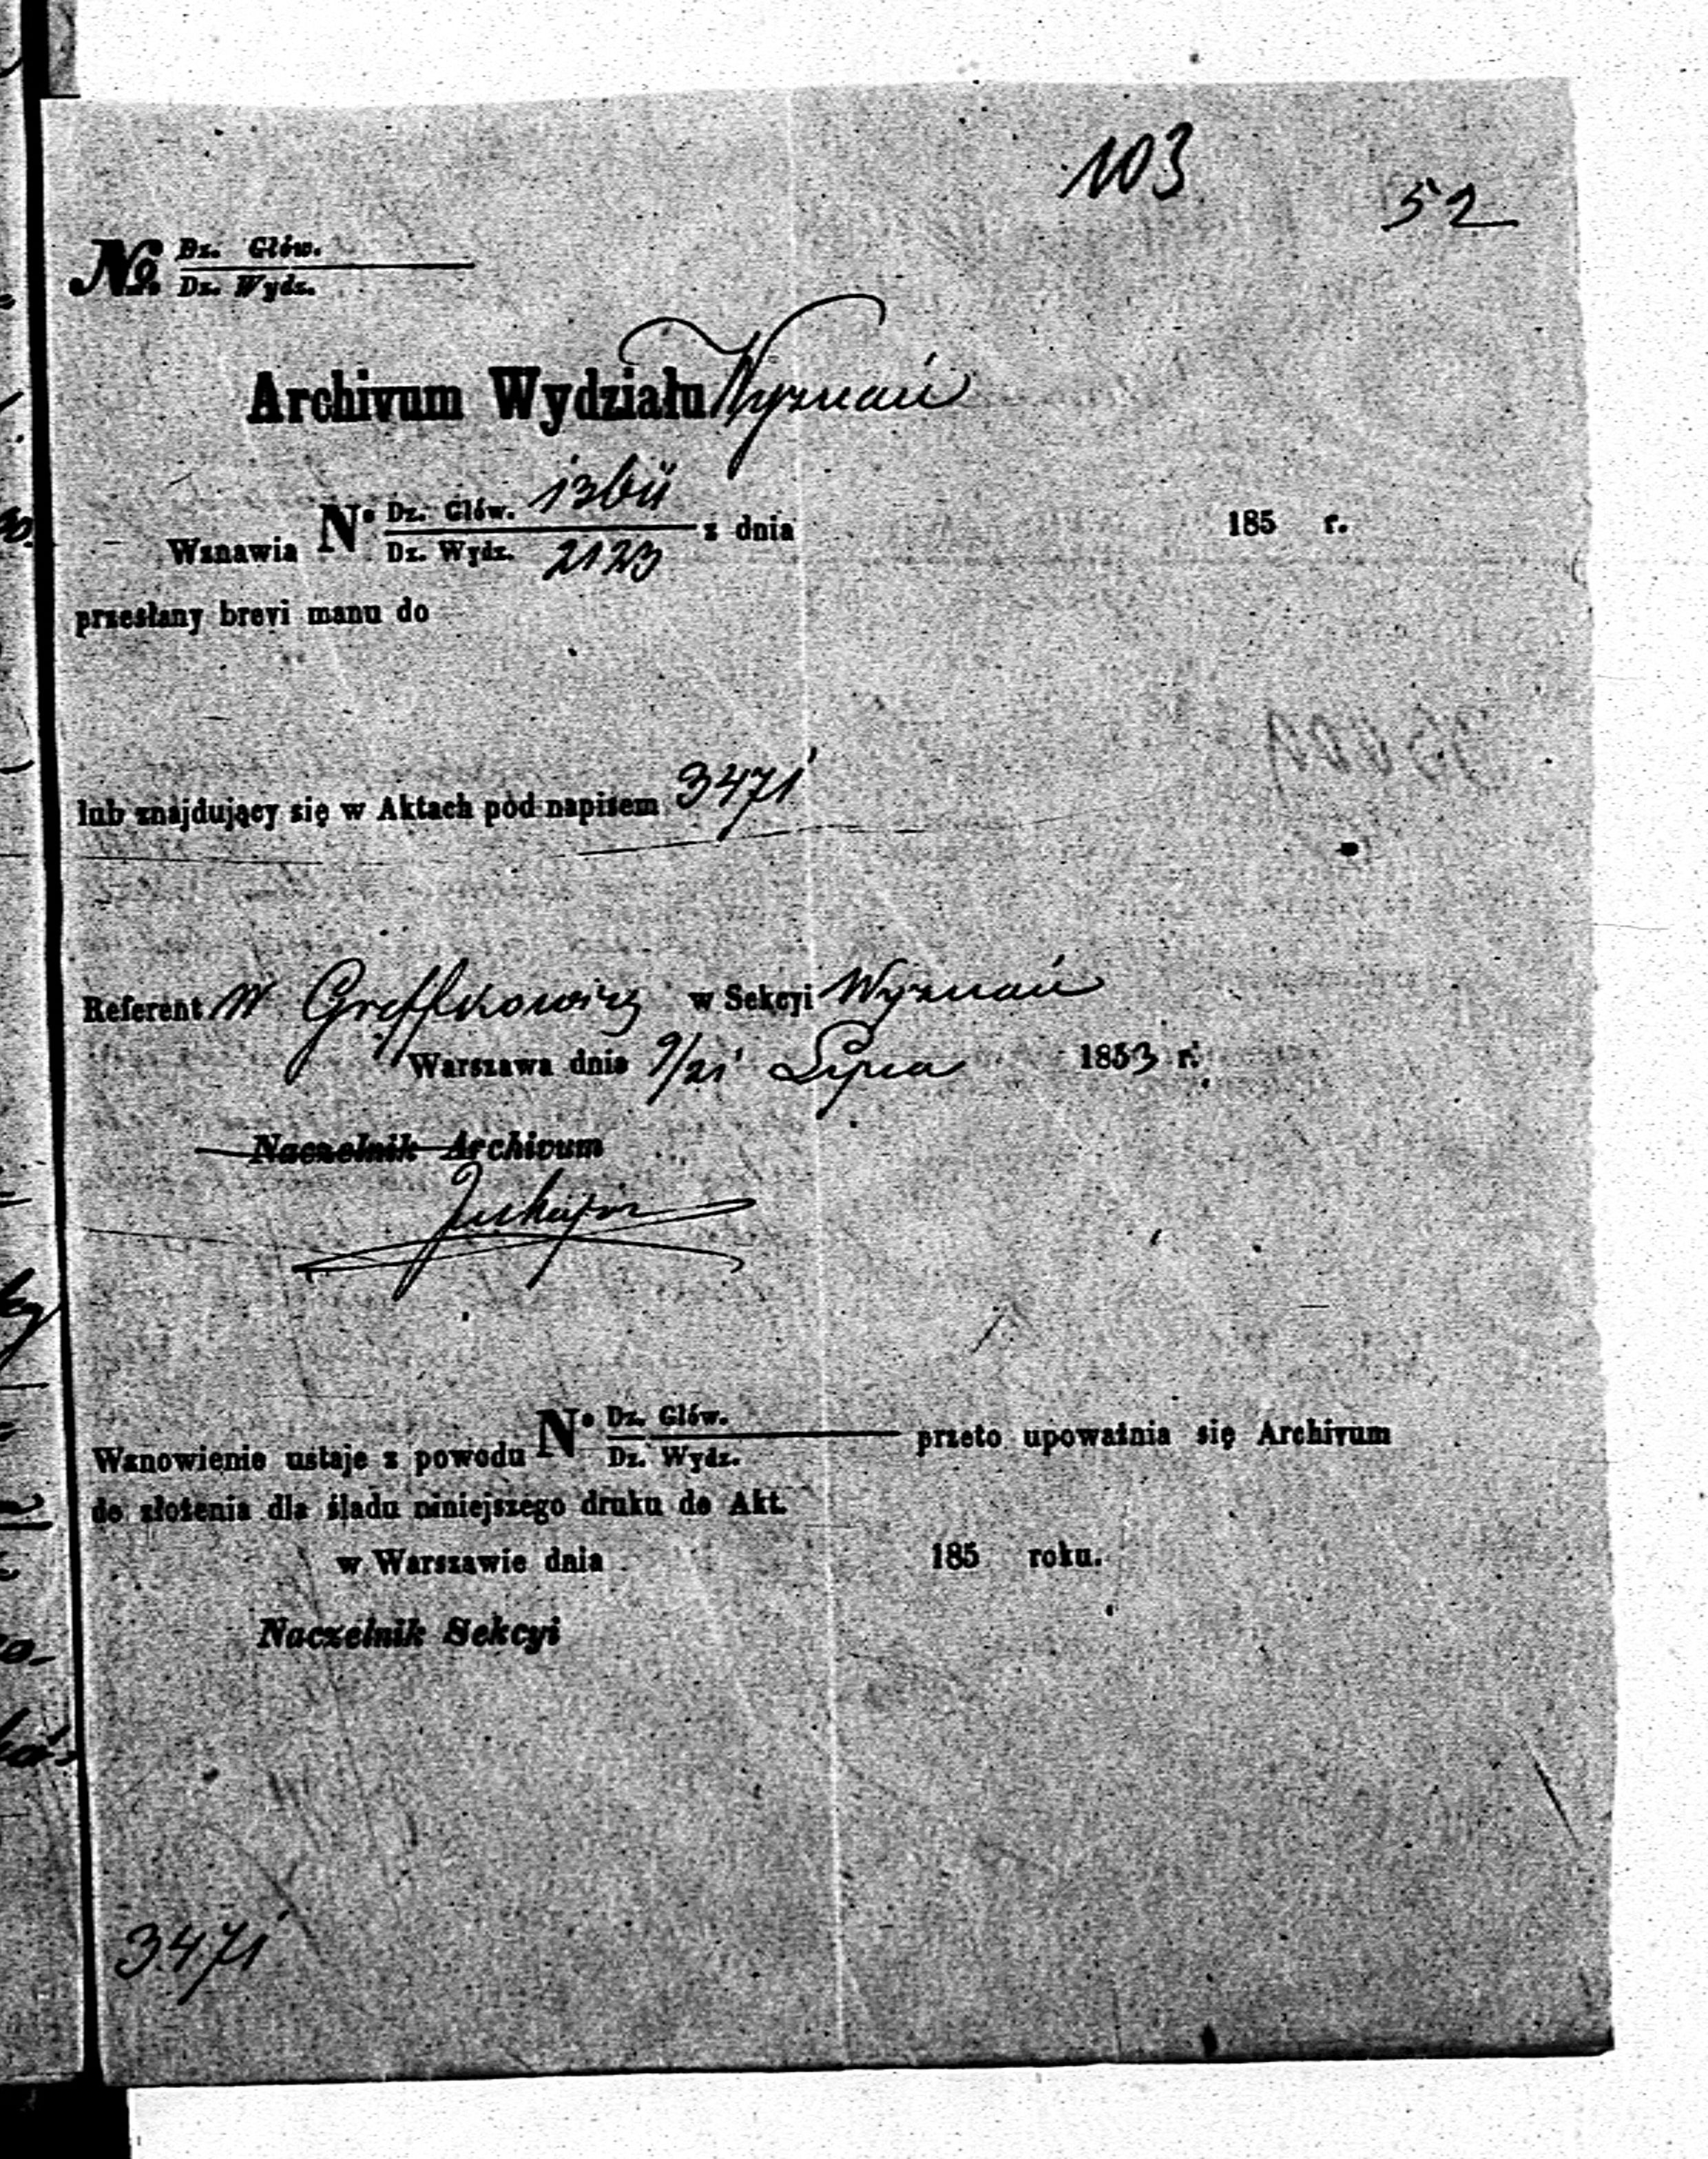 103
52
№ Dz. Głów.
Dz. Wydz.
Archivum Wydziału Wyznań
Wznawia N° Dz. Głów. z dnia 185 r.
Dz. Wydz. 2123
przesłany brevi manu do
lub znajdujący się w Aktach pod napisem 3471
Referent W w Sekcyi Wyznań
Warszawa dnia 9/21 Lipca 1853 r.
Naczelnik Archivum
Wznowienie ustaje z powodu N° Dz. Głów. przeto upoważnia się Archivum
Dz. Wydz.
do złożenia dla śladu niniejszego druku do Akt.
w Warszawie dnia 185 roku.
Naczelnik Sekcyi
3471